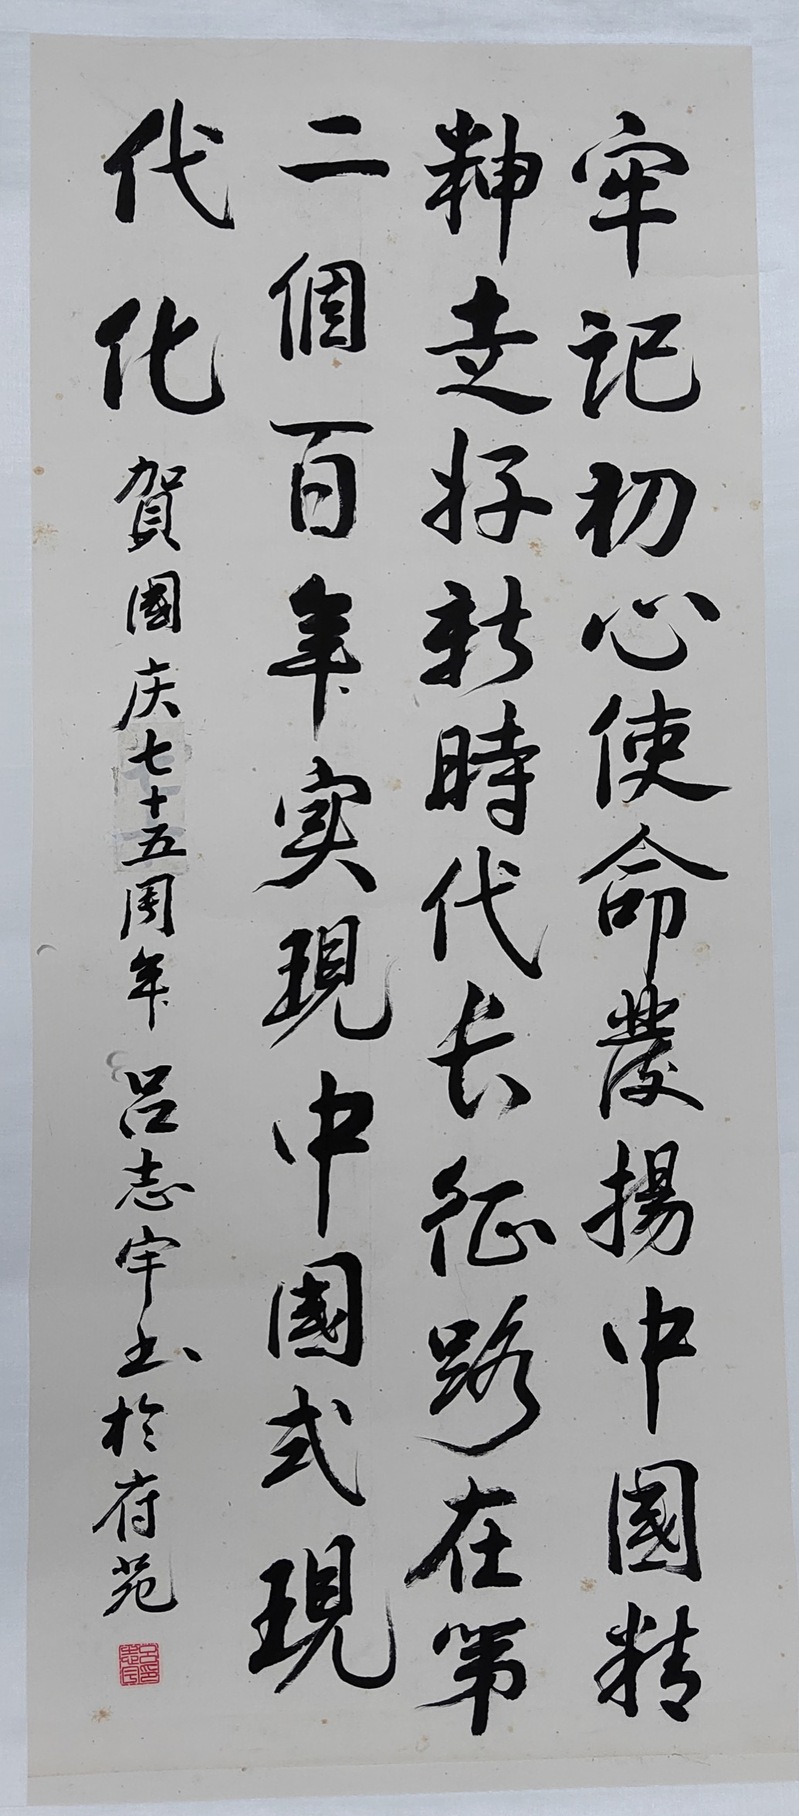 牢记初心使命發揚中國精
神走好新時代长征路在第
二個百年实現中國式現
代化
賀國庆七十五周年 吕志宇书於府苑